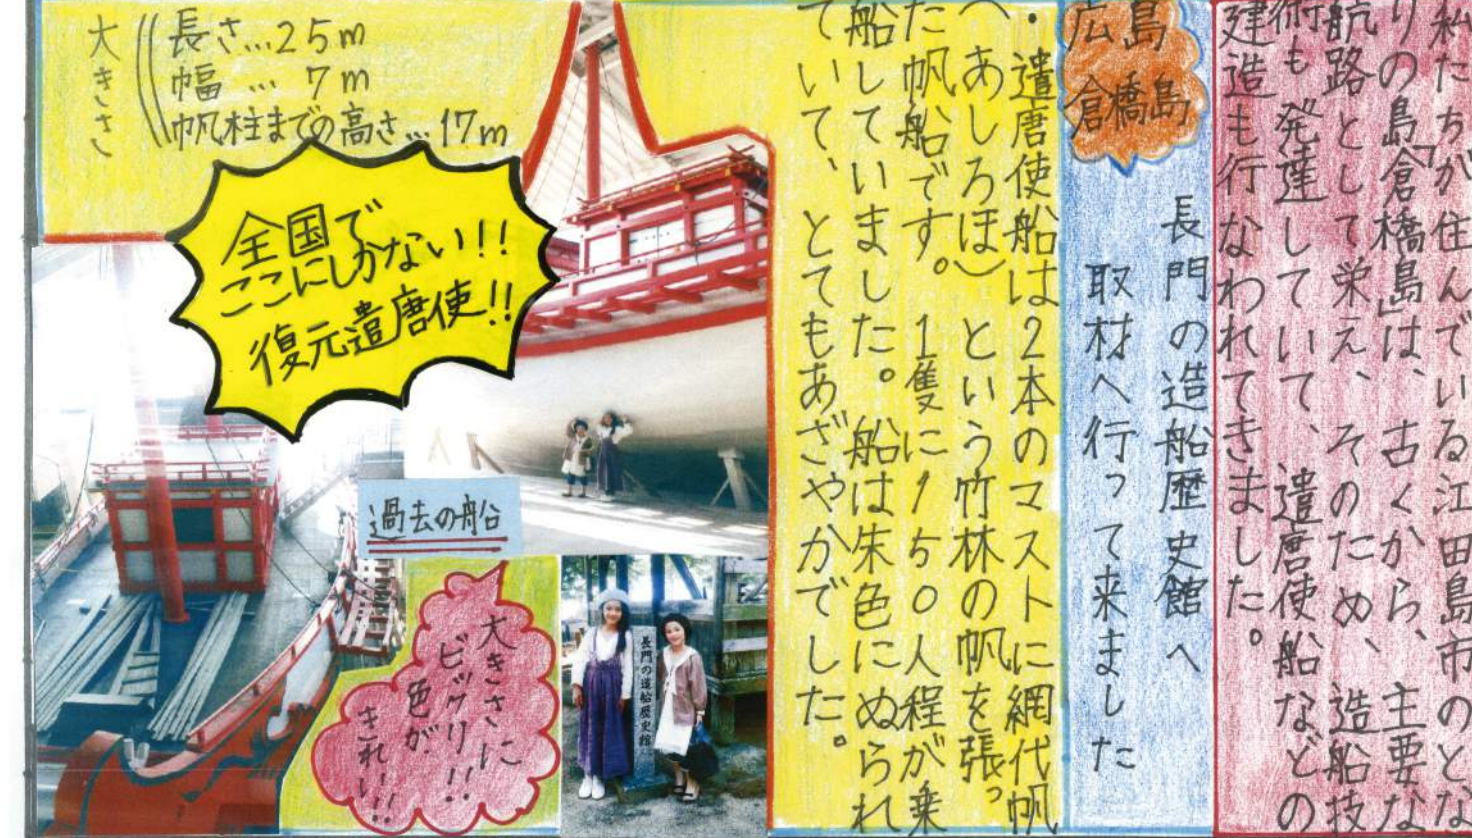 私たちが住んでいる江田島市のとな
りの島「倉橋島」は、古くから、主要な
航路として栄え、そのため、造船技
術も発達していて、遣唐使船などの
建造も行なわれてきました。
広島
倉橋島
長門の造船歴史館へ
取材へ行って来ました
・遣唐使船は2本のマストに網代帆
(あじろほ)という竹林の帆を張っ
た帆船です。1隻に150人程が乗
船していました。船は朱色にぬられ
ていて、とてもあざやかでした。
大きさ
長さ…25m
幅…7m
帆柱までの高さ…17m
全国で
ここにしかない!!
復元遣唐使!!
過去の船
大きさに
ビックリ!!
色が
きれい!!
長門の造船歴史館